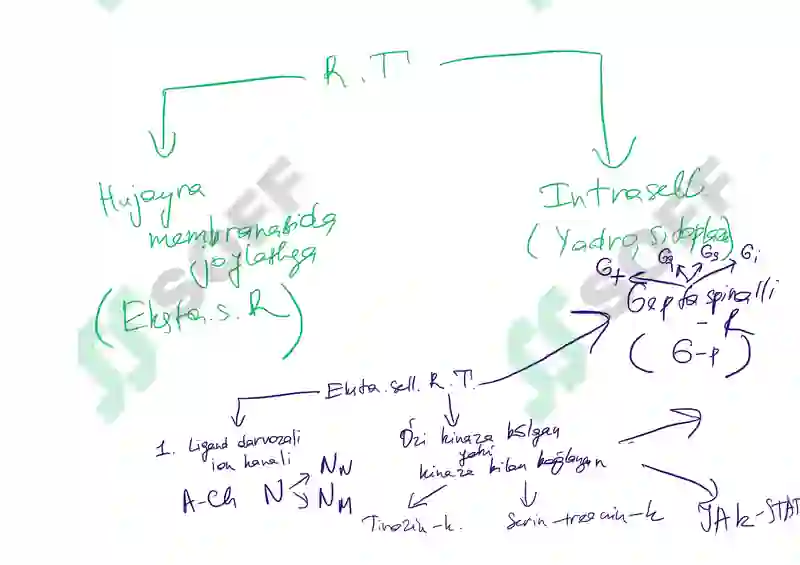 R.T
Hujayra
membranasida
joylashga
(Eksta.s.R)
Intrasell.
(Yadro, sitoplaz)
Gt Gq Gs Gi
Gepta spinalli
- R
(G-p)
Eksta.sell.R.T.
1. Ligand darvozali
ion kanali
A-Ch N NN
NM
Özi kinaza bölgan
yoki
kinaza bilan boğlangan
Tirozin-k.
Serin-treonin-k
JAk-STAT
SSCEF
SSCEF